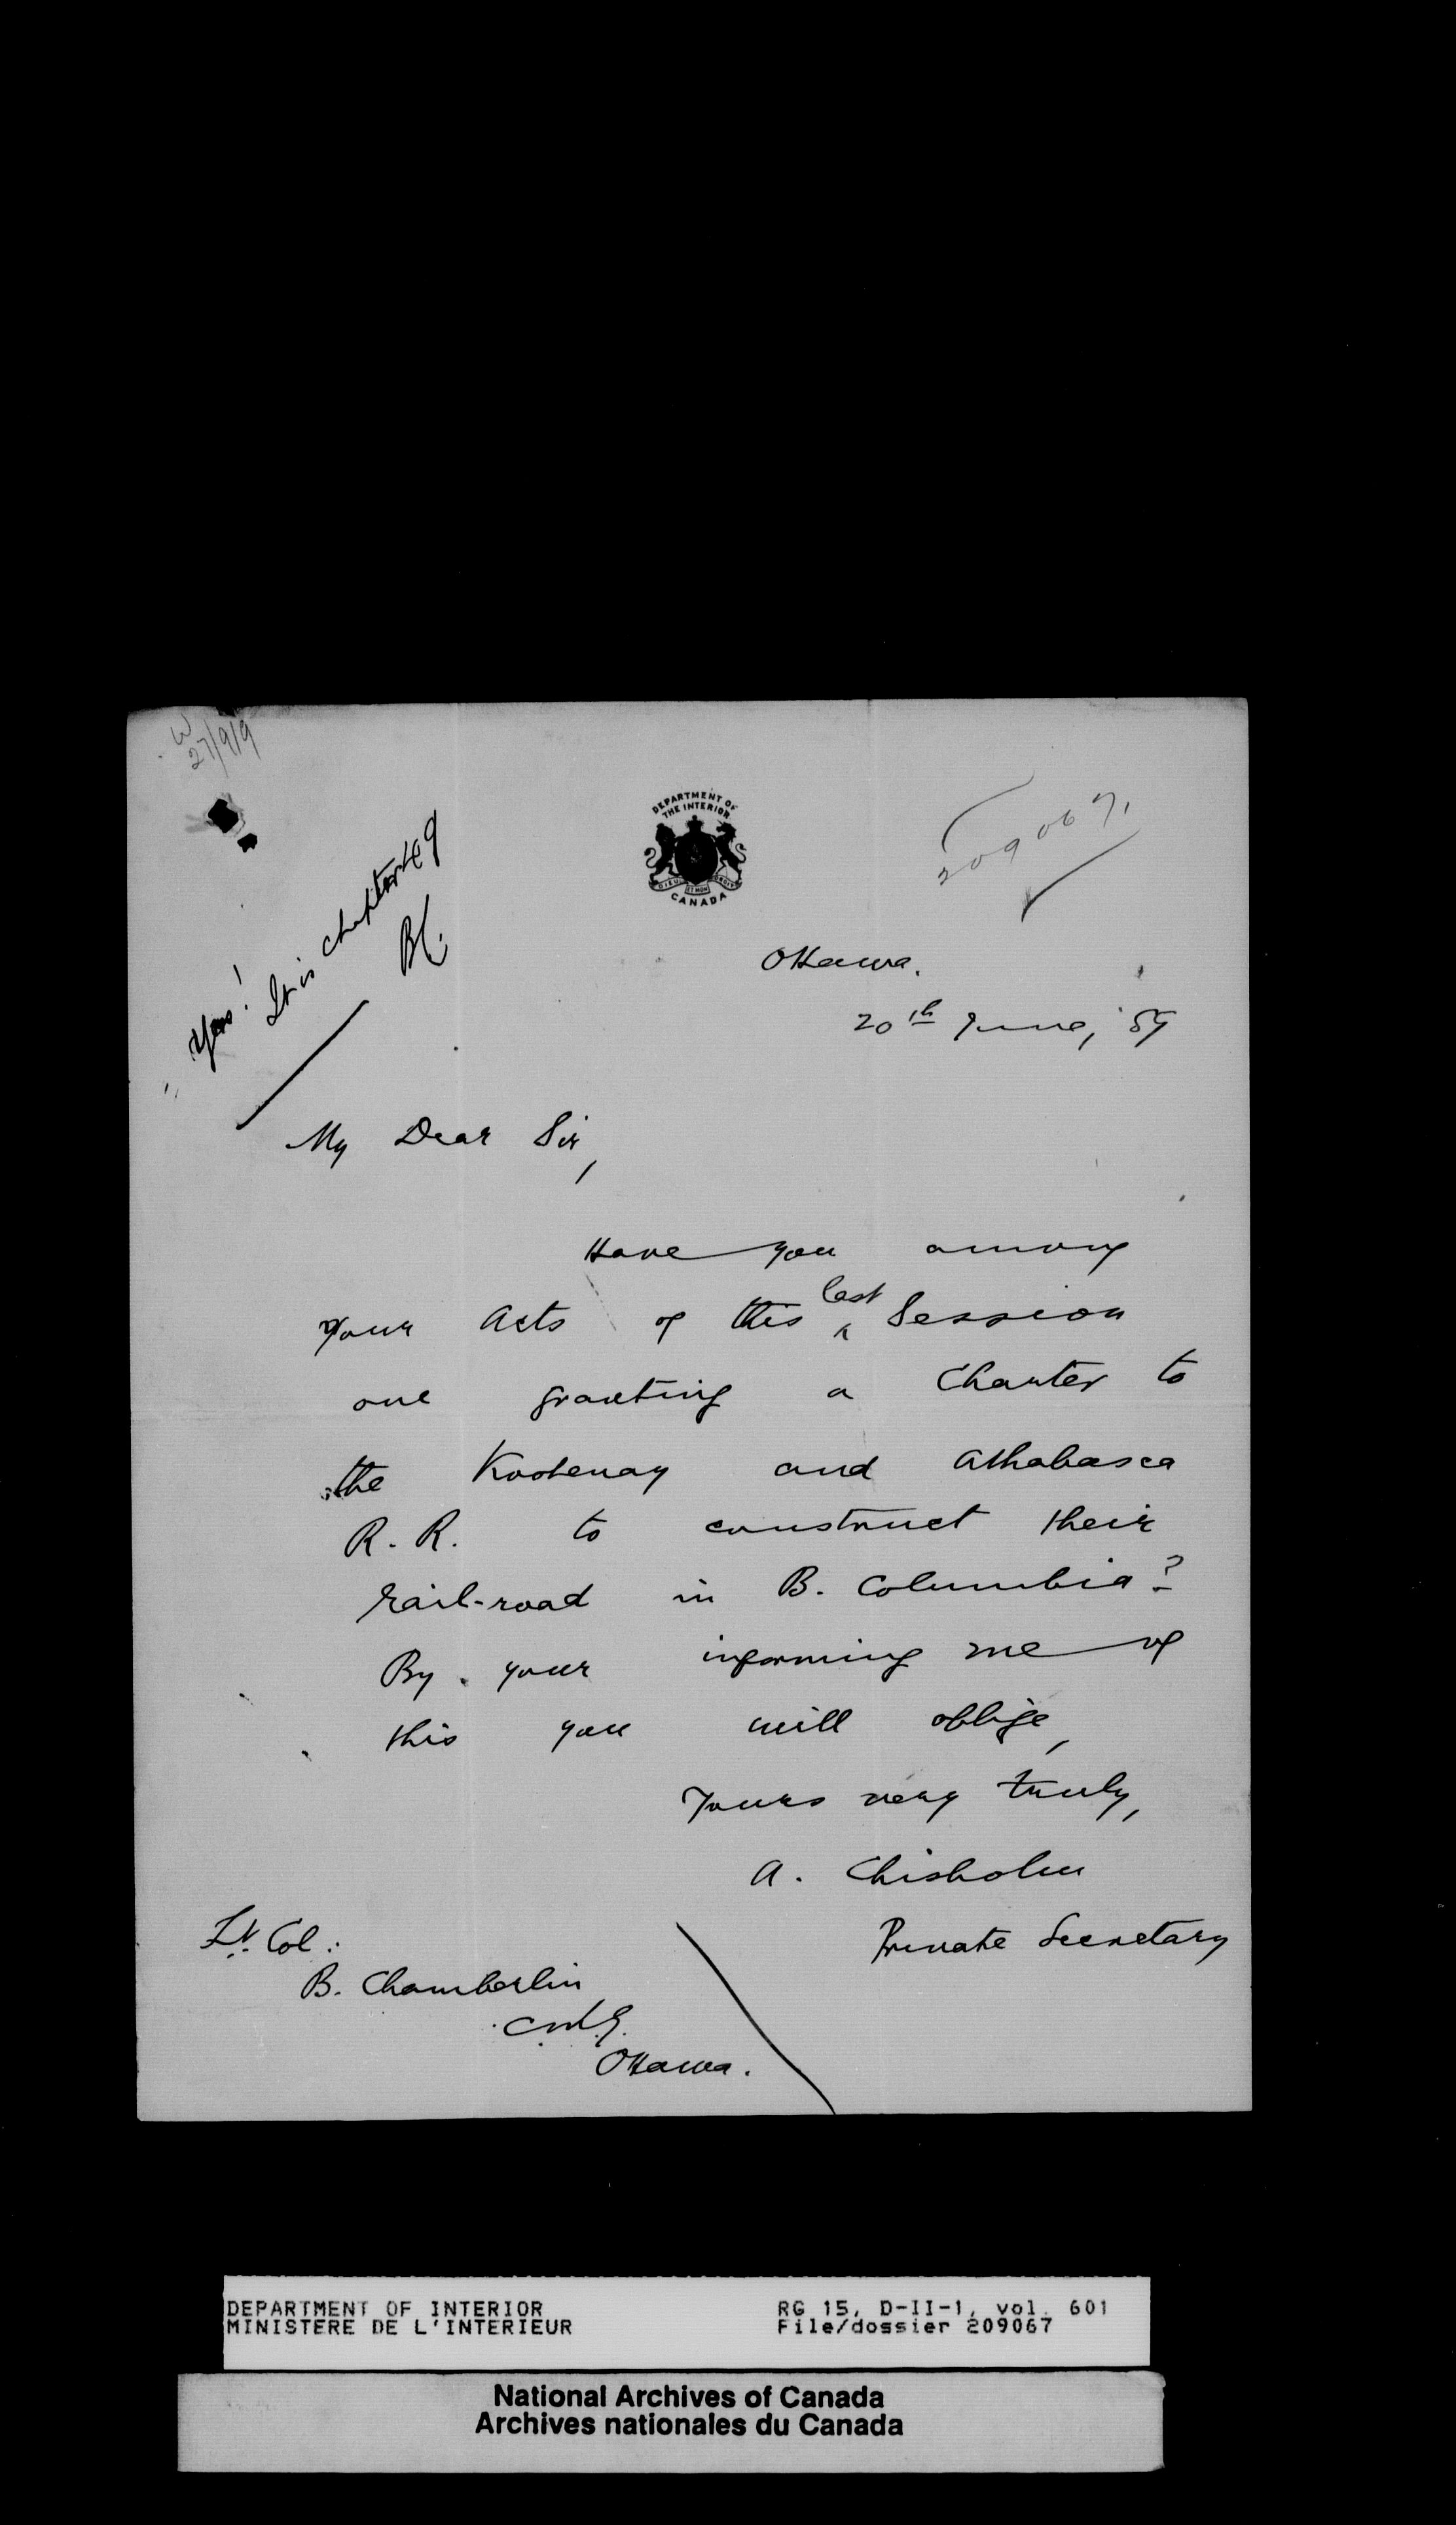 W
27/9/9
209067.
DEPARTMENT OF
THE INTERIOR
DIEU ET MON DROIT
CANADA
Yes!
It is chapter 49
BC.
Ottawa.
20th June, '89
My Dear Sir,
Have you among
your Acts of this last Session
one granting a Charter to
the Kootenay and Athabasca
R. R. to construct their
rail-road in B. Columbia?
By your informing me of
this you will oblige,
Yours very truly,
A. Chisholm
Private Secretary
Lt. Col:
B. Chamberlin
C.M.G.
Ottawa.
DEPARTMENT OF INTERIOR
MINISTERE DE L'INTERIEUR
RG 15, D-II-1, vol. 601
File/dossier 209067
National Archives of Canada
Archives nationales du Canada